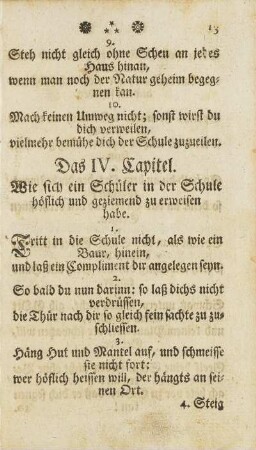 13
9.
Steh nicht gleich ohne Scheu an jedes
Haus hinan,
wenn man noch der Natur geheim begeg-
nen kan.
10.
Mach keinen Umweg nicht; sonst wirst du
dich verweilen,
vielmehr bemühe dich der Schule zuzueilen.
Das IV. Capitel.
Wie sich ein Schüler in der Schule
höflich und geziemend zu erweisen
habe.
1.
Tritt in die Schule nicht, als wie ein
Baur, hinein,
und laß ein Compliment dir angelegen seyn.
2.
So bald du nun darinn: so laß dichs nicht
verdrüssen,
die Thür nach dir so gleich fein sachte zu zu-
schliessen.
3.
Häng Hut und Mantel auf, und schmeisse
sie nicht fort:
wer höflich heissen will, der hängts an sei-
nen Ort.
4. Steig